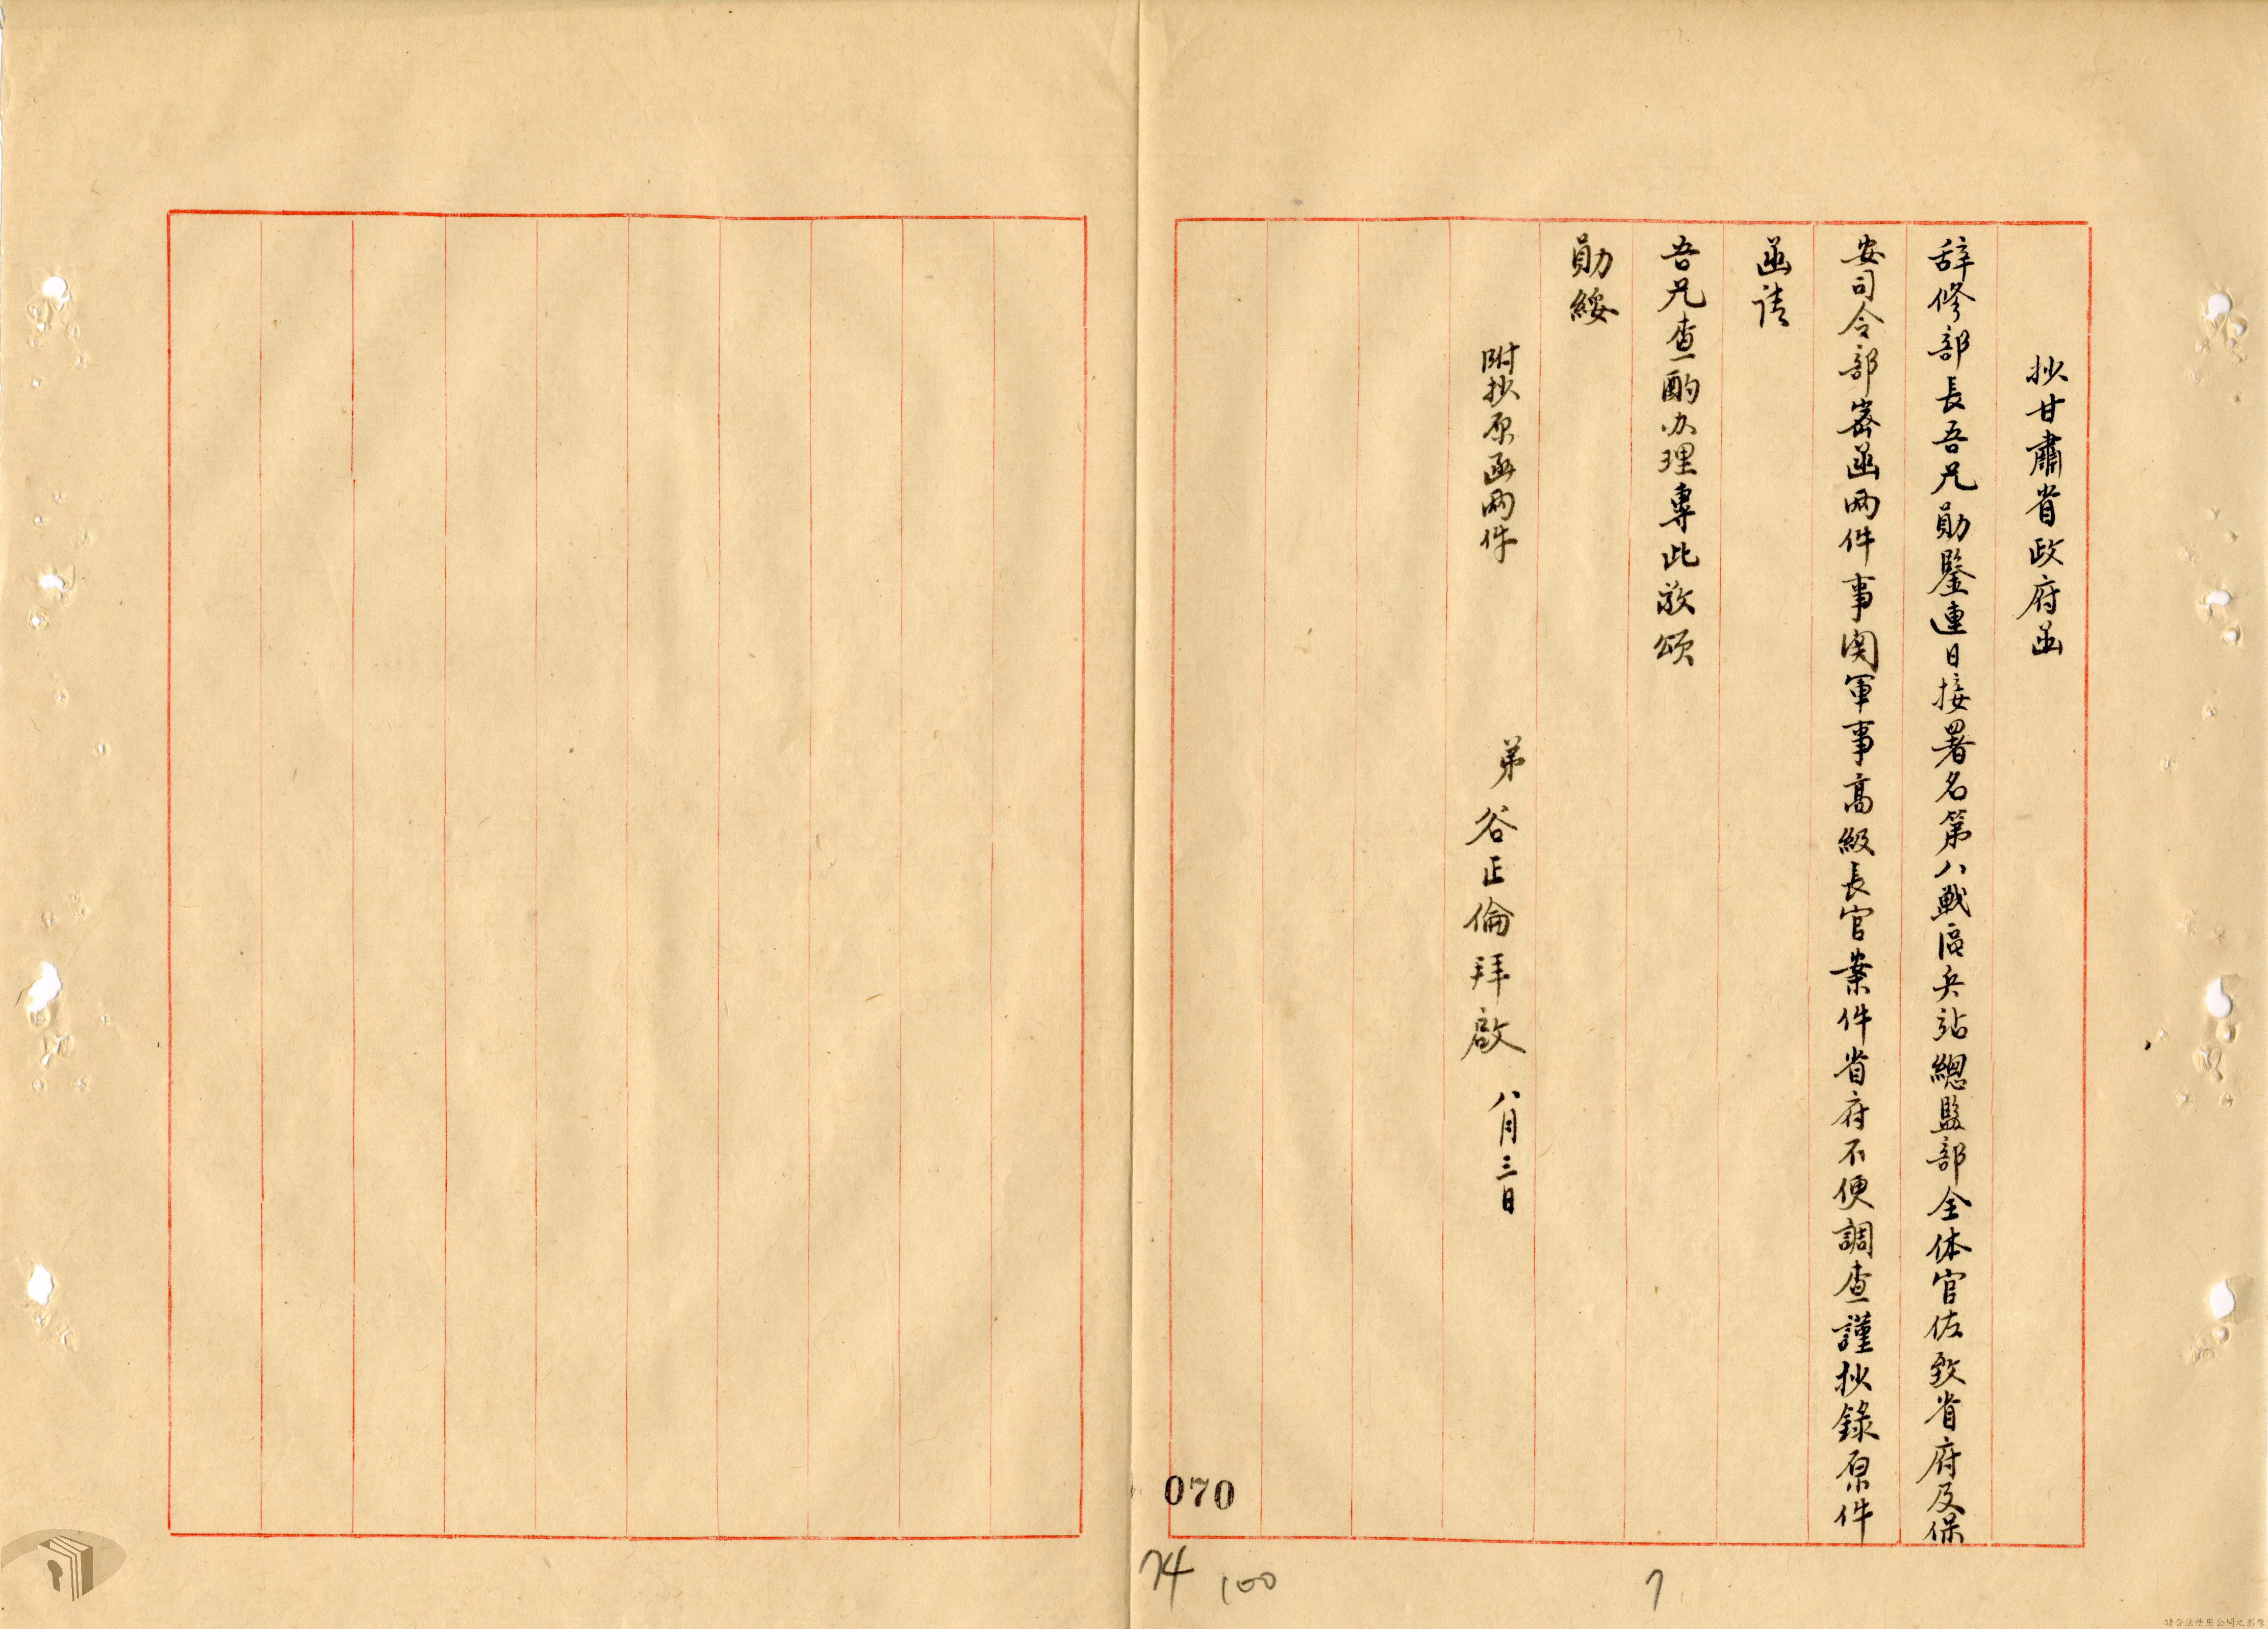 抄甘肅省政府函
辞修部長吾兄勛鑒連日接署名第八戰區兵站總監部全体官佐致省府及保
安司令部密函两件事関軍事高級長官案件省府不便調查謹抄錄原件
函請
吾兄查酌办理專此敬頌
勛綏
附抄原函两件
弟谷正倫拜啟 八月三日
070
74
100
7
請合法使用公開之影像